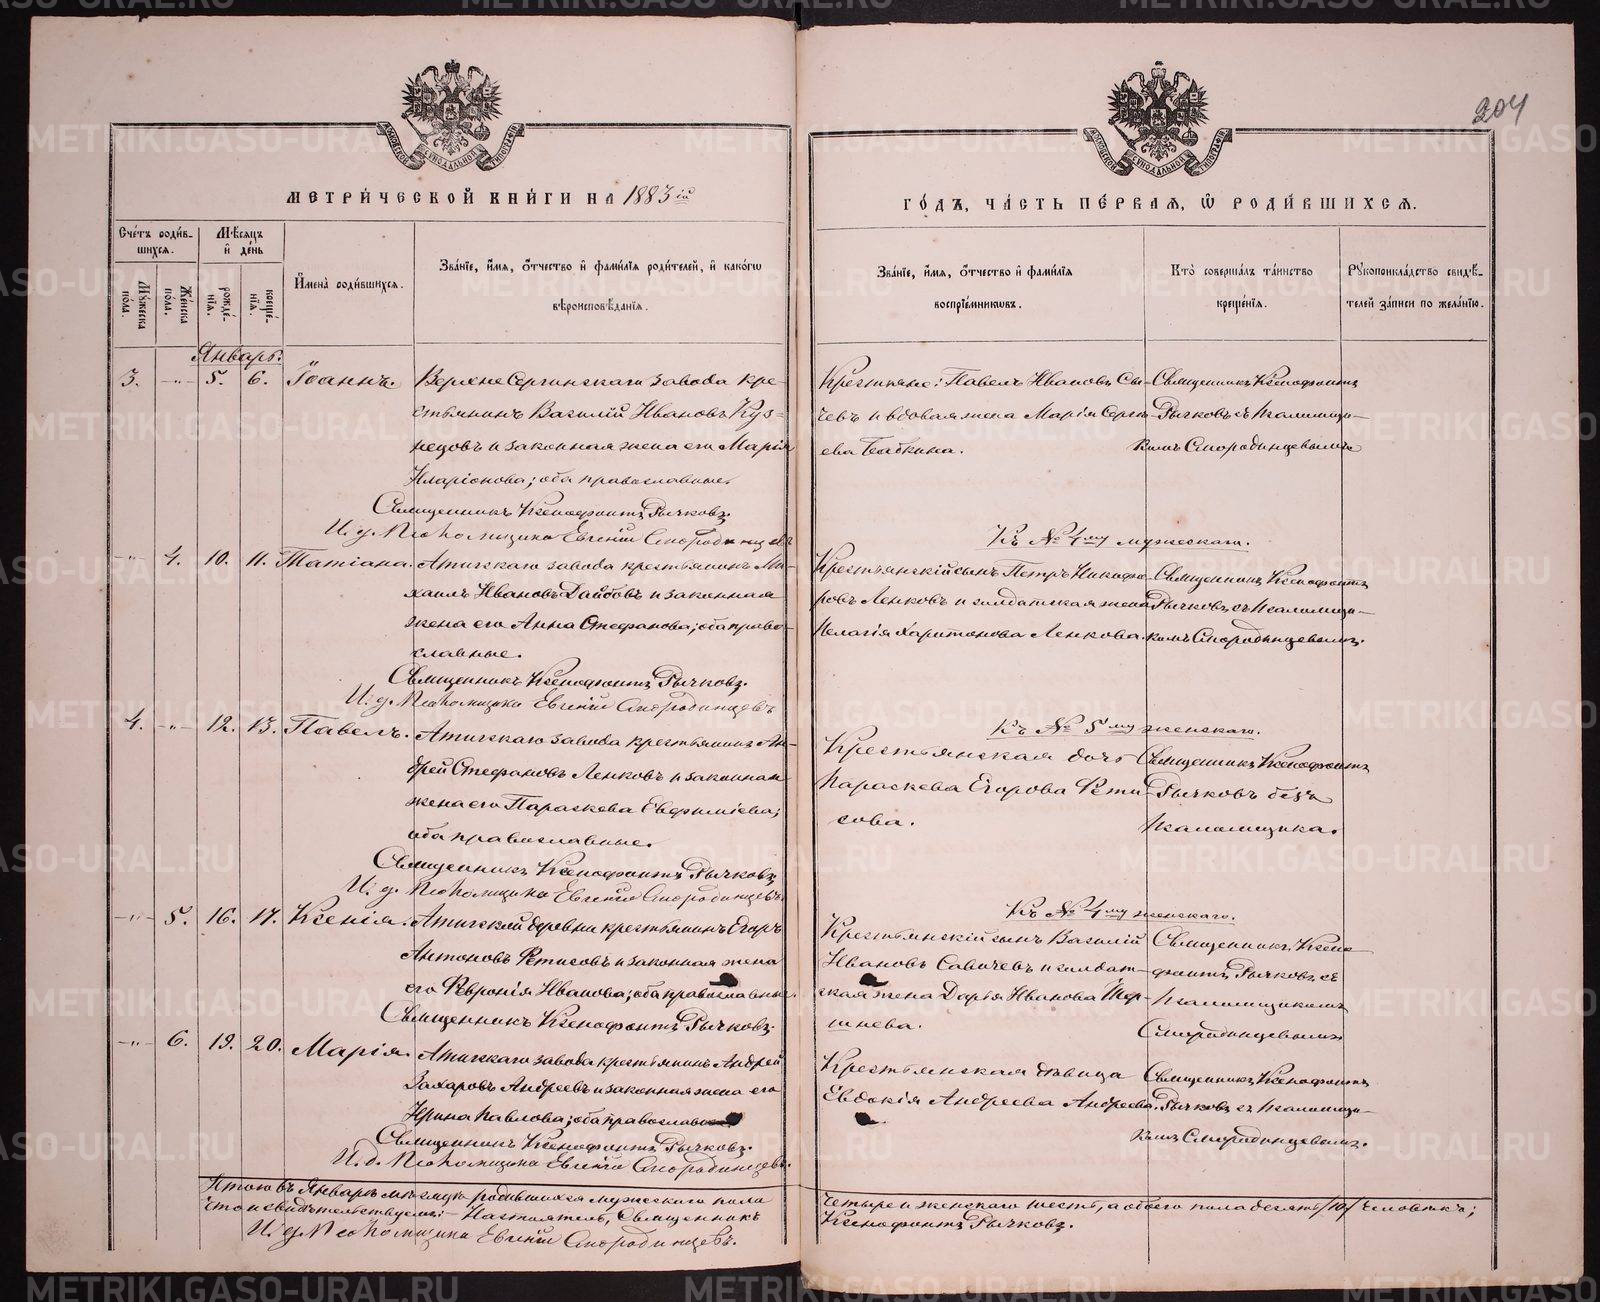 204
МЕТРИ́ЧЕСКОЙ КНИ́ГИ НА 1883 й
ГО́ДЪ, ЧА́СТЬ ПЕ́РВАЯ, Ѡ РОДИ́ВШИХСЯ.
Сче́тъ роди́в-
шихся.
Мѣ́сяцъ
и́ де́нь
Мꙋ́жеска по́ла.
Же́нска по́ла.
рожде́-
нїя.
креще́-
нїя.
И҆мена̀ роди́вшихся.
Зва́нїе, и҆́мя, о҆́тчество и҆ фами́лїя роди́телей, и҆ како́гѡ
вѣроисповѣ́данїя.
Зва́нїе, и҆́мя, о҆́тчество и҆ фами́лїя
воспрїе́мникѡвъ.
Кто̀ соверша́лъ та́инство
креще́нїя.
Рꙋкоприкла́дство свидѣ́-
телей за́писи по жела́нїю.
Январь.
3. -"- 5. 6. Іоаннъ.
Верхне Сергинскаго завода кре-
стьянинъ Василій Ивановъ Куз-
нецовъ и законная жена его Марія
Иларіонова; оба православные.
Священникъ Ксенофонтъ Рычковъ.
И. д. Псаломщика Евгеній Смородинцевъ
Крестьяне: Павелъ Ивановъ Сы-
чевъ и вдовая жена Марія Серги-
ева Бабкина.
Священникъ Ксенофонтъ
Рычковъ съ псаломщи-
комъ Смородинцевымъ
-"- 4. 10. 11. Татіана.
Атигскаго завода крестьянинъ Ми-
хаилъ Ивановъ Дайбовъ и законная
жена его Анна Стефанова; оба право-
славные.
Священникъ Ксенофонтъ Рычковъ.
И. д. Псаломщика Евгеній Смородинцевъ
Къ № 4 му мужескаго.
Крестьянскій сынъ Петръ Никифо-
ровъ Ленковъ и солдатская жена
Пелагія Харитонова Ленкова.
Священникъ Ксенофонтъ
Рычковъ съ псаломщи-
комъ Смородинцевымъ.
4. -"- 12. 13. Павелъ.
Атигскаго завода крестьянинъ Ан-
дрей Стефановъ Ленковъ и законная
жена его Параскева Евфиміева;
оба православные.
Священникъ Ксенофонтъ Рычковъ
И. д. Псаломщика Евгеній Смородинцевъ.
Къ № 5 му женскаго.
Крестьянская дочь
Параскева Егорова Рети-
сова.
Священникъ Ксенофонтъ
Рычковъ безъ
псаломщика.
-"- 5. 16. 17. Ксенія.
Атигской деревни крестьянинъ Егоръ
Антоновъ Ретисовъ и законная жена
его Февронія Иванова; оба православные.
Священникъ Ксенофонтъ Рычковъ.
Къ № 4 му женскаго.
Крестьянскій сынъ Василій
Ивановъ Савичевъ и солдат-
ская жена Дарія Иванова Тер-
шнева.
Священникъ Ксено-
фонтъ Рычковъ съ
псаломщикомъ
Смородинцевымъ
-"- 6. 19. 20. Марія.
Атигскаго завода крестьянинъ Андрей
Захаровъ Андреевъ и законная жена его
Ирина Павлова; оба православные
Священникъ Ксенофонтъ Рычковъ.
И. д. Псаломщика Евгеній Смородинцевъ.
Крестьянская дѣвица
Евдокія Андреева Андреева.
Священникъ Ксенофонтъ
Рычковъ съ псаломщи-
комъ Смородинцевымъ.
Итого въ Январѣ мѣсяцѣ родившихся мужескаго пола
четыре и женскаго шесть, а обоего пола десять /10/ человѣкъ;
что и свидѣтельствуемъ: — Настоятель, Священникъ
Ксенофонтъ Рычковъ.
И. д. Псаломщика Евгеній Смородинцевъ.
METRIKI.GASO-URAL.RU